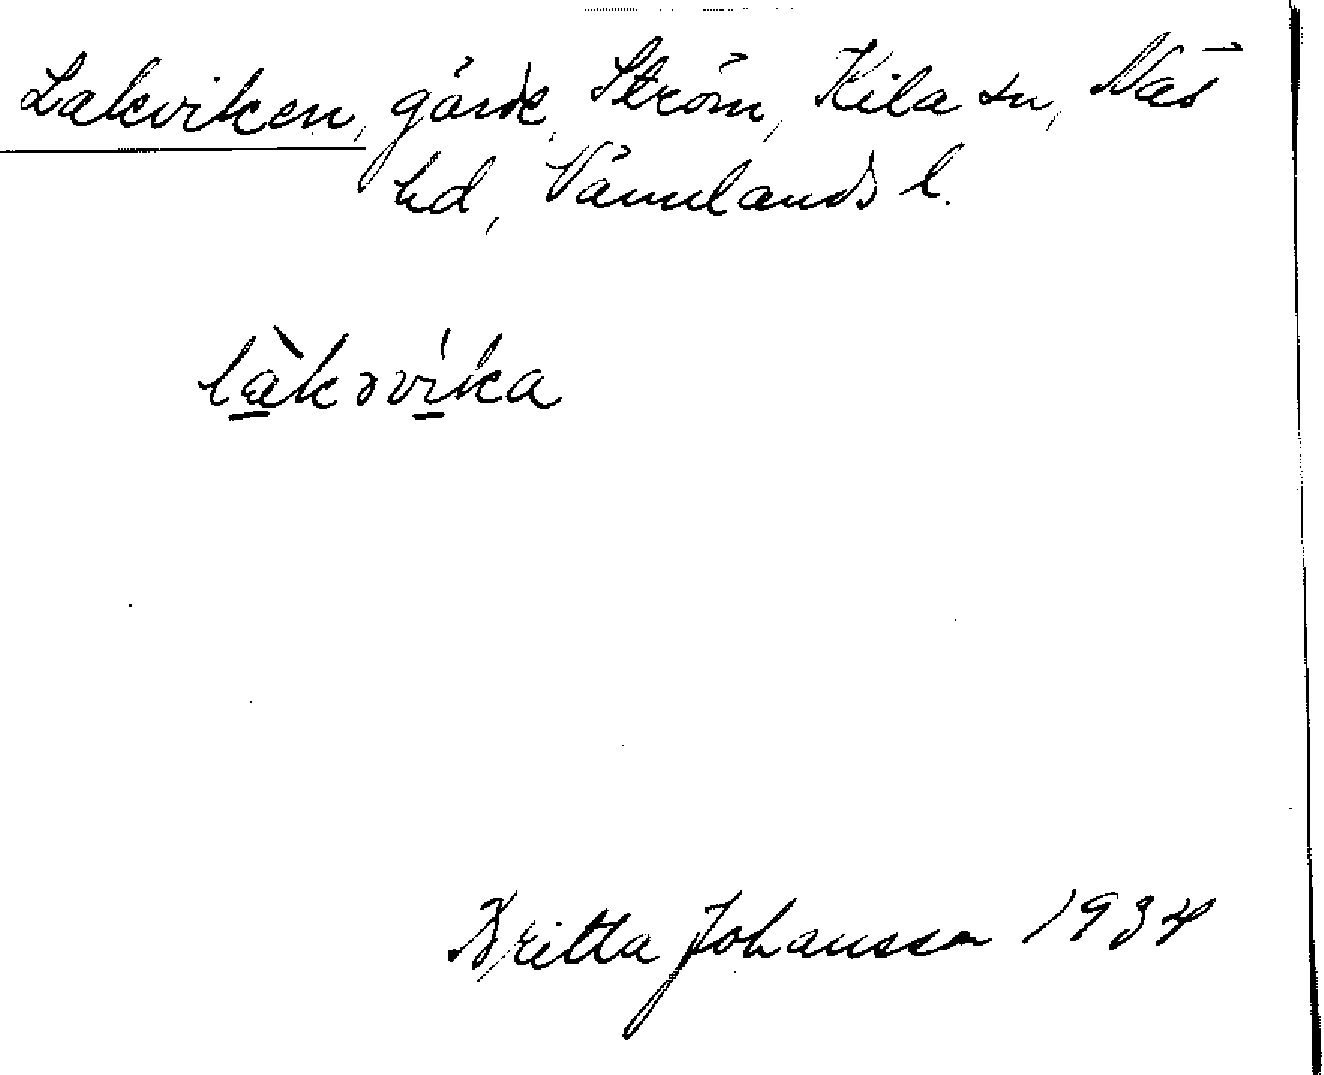 Lakviken, gärde, Ström, Kila sn, Näs
hd, Värmlands l.
làkəvíka
Britta Johansson 1934